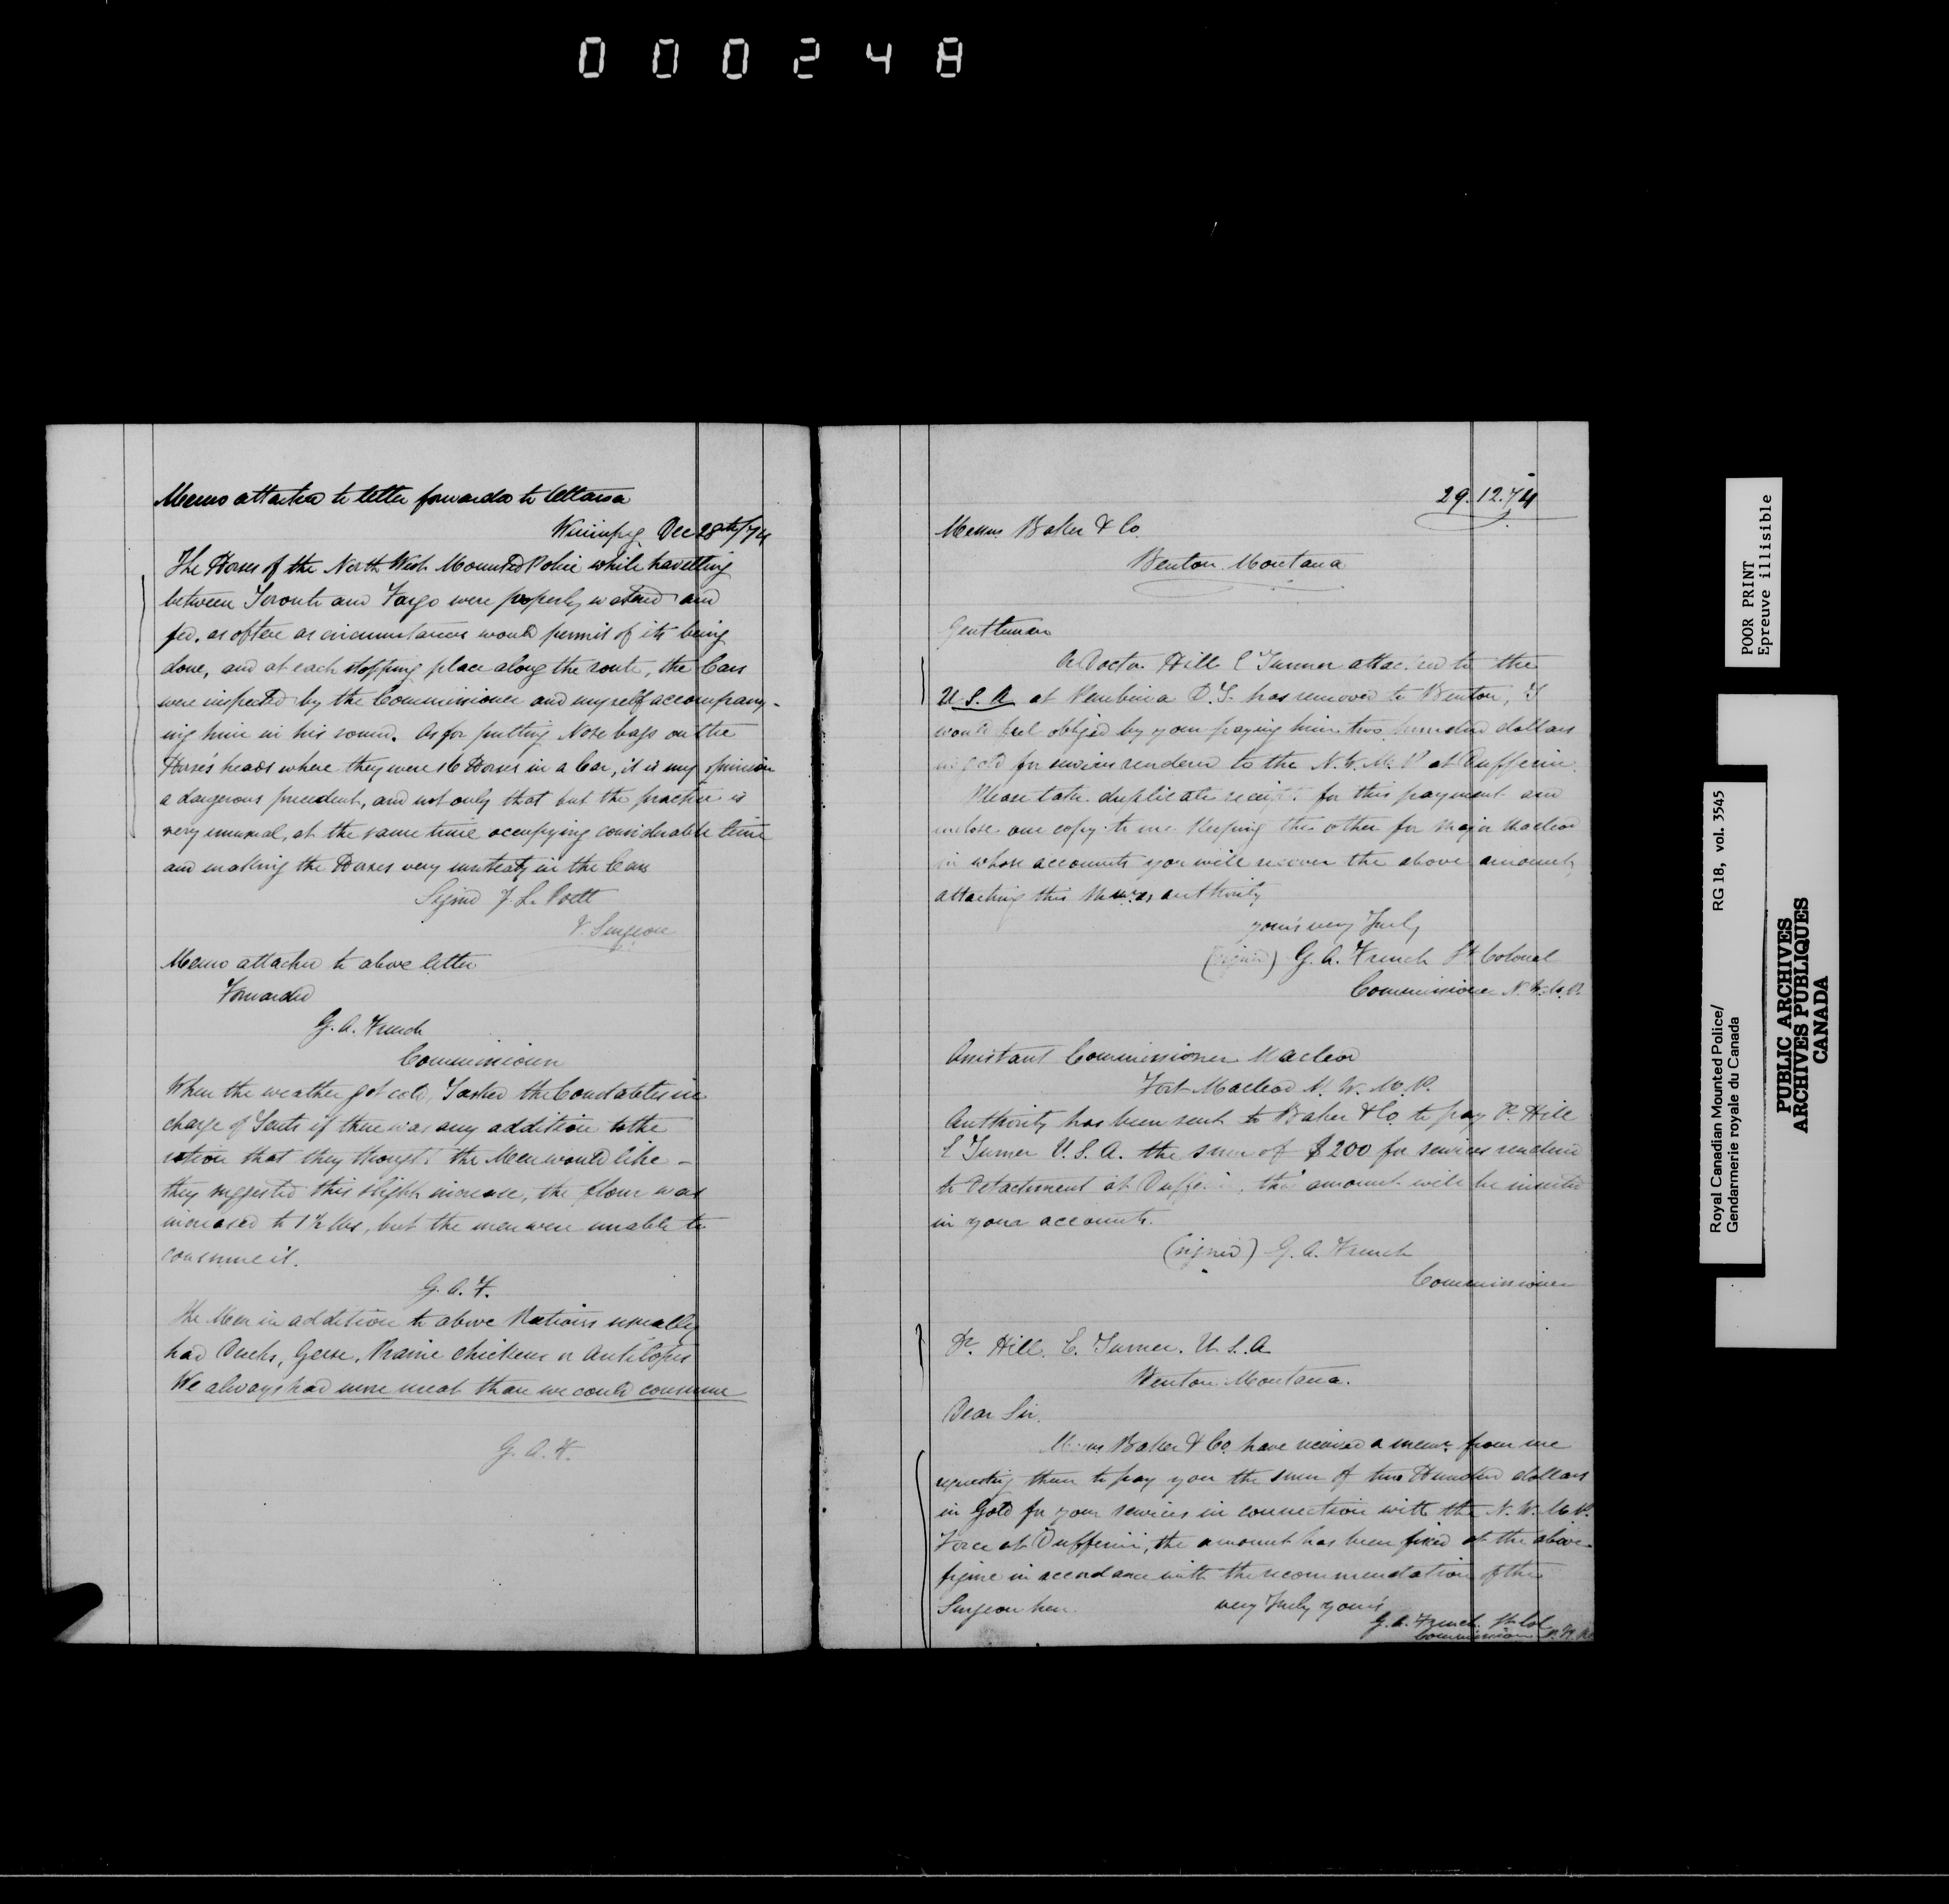 000248
Memo attached to letter forwarded to Ottawa
Winnipeg Dec 28th/74
The Horses of the North West Mounted Police while travelling
between Toronto and Fargo were properly watered and
fed, as often as circumstances would permit of its being
done, and at each stopping place along the route, the Cars
were inspected by the Commissioner and myself accompany-
ing him in his round. As for putting Nose bags on the
Horse's heads where they were 16 Horses in a Car, it is my opinion
a dangerous precedent, and not only that but the practice is
very unusual, at the same time occupying considerable time
and making the Horses very unsteady in the Cars
Signed J. L. Poett
V. Surgeon
Memo attached to above letter
Forwarded
G. A. French
Commissioner
When the weather got cold, I asked the Constables in
charge of Tents if there was any addition to the
ration that they thought the Men would like -
they suggested this slight increase, the flour was
increased to 1½ lbs, but the men were unable to
consume it.
G. A. F.
The Men in addition to above Rations usually
had Ducks, Geese, Prairie chickens or Antilopes
We always had more meat than we could consume
G. A. F.
29.12.74
Messrs Baker & Co.
Benton Montana
Gentlemen
A Doctor Hill E Turner attached to the
U.S.A at Pembina D.T. has removed to Benton, I
would feel obliged by your paying him two hundred dollars
in gold for services rendered to the N.W.M.P at Dufferin.
Please take duplicate receipts for this payment and
enclose one copy to me Keeping the other for Major Macleod
in whose accounts you will recover the above amount,
attaching this Memo as authority
yours very Truly
(signed) G. A. French Lt Colonel
Commissioner N.W.M.P.
Assistant Commissioner Macleod
Fort Macleod N.W.M.P.
Authority has been sent to Baker & Co. to pay Dr Hill
E Turner U.S.A. the sum of $200 for services rendered
to Detachment at Dufferin, the amount will be inserted
in your accounts.
(signed) G. A. French
Commissioner
Dr. Hill. E. Turner. U.S.A
Benton Montana.
Dear Sir.
Messrs Baker & Co. have received a memo from me
requesting them to pay you the sum of two Hundred dollars
in Gold for your services in connection with the N.W.M.P.
Force at Dufferin, the amount has been fixed at the above
figure in accordance with the recommendation of the
Surgeon here.
very Truly yours
G. A. French. Lt Col
Commissioner N.W.M.P.
POOR PRINT
Epreuve illisible
RG 18, vol. 3545
Royal Canadian Mounted Police/
Gendarmerie royale du Canada
PUBLIC ARCHIVES
ARCHIVES PUBLIQUES
CANADA